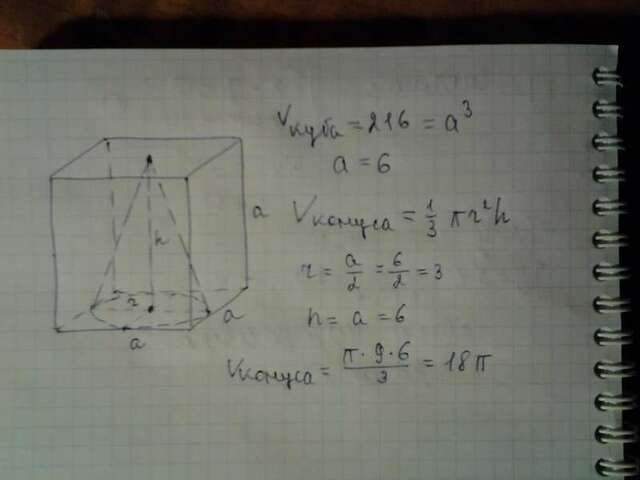 Vкуба = 216 = a³
a = 6
a
Vконуса = 1/3 πr²h
h
r = a/2 = 6/2 = 3
r
a
h = a = 6
a
Vконуса = π·9·6/3 = 18π